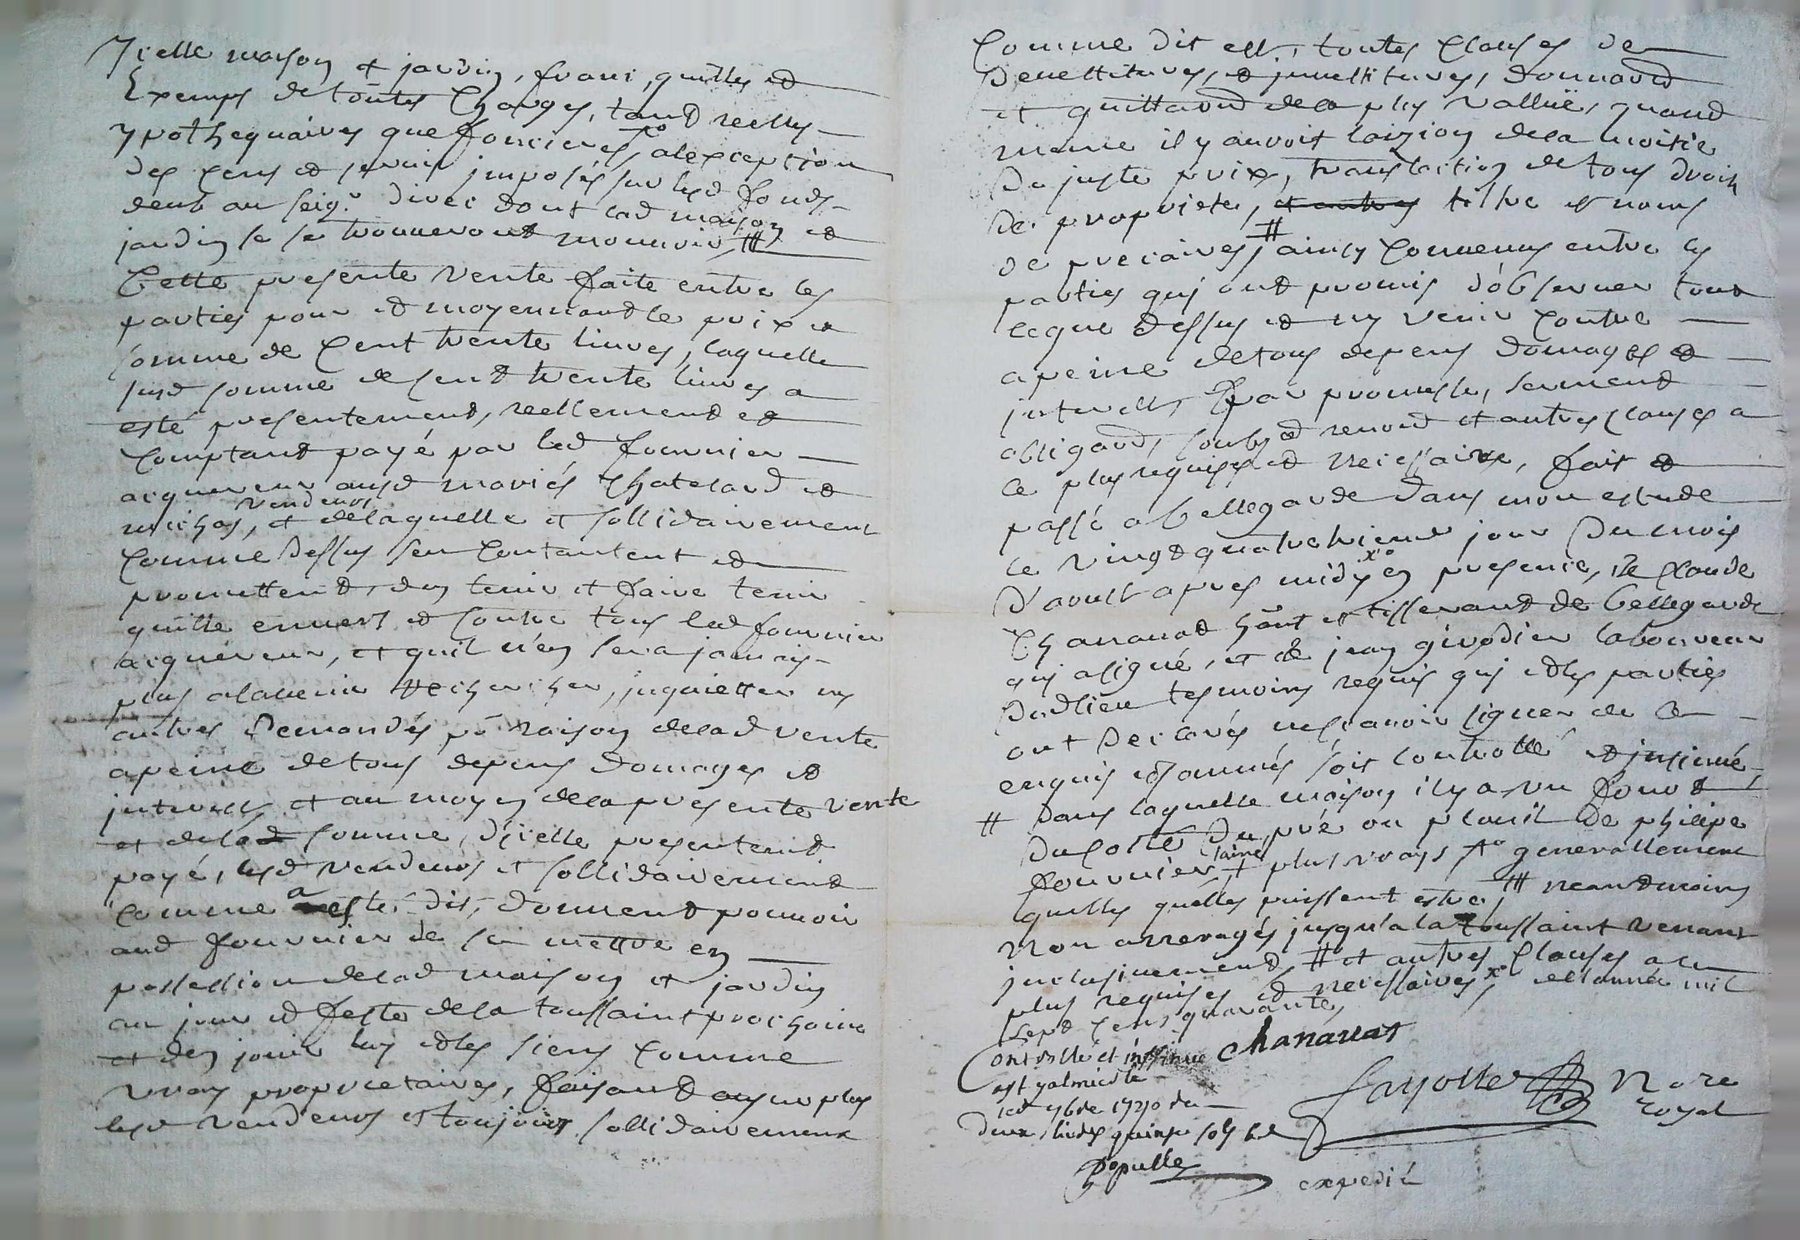 Icelle maison et jardin, franc, quittes et
Exemps de toutes charges, tand reelles
ypothequaires que foncieres, alexception
des cens et servis imposés sur lesd fonds
deub au seigr divec dont lad maison et
jardin se se trouveront mouvoir #
Cette presente vente faite entre les
parties pour et moyennant le prix et
somme de cent trente livres, laquelle
susd somme de cend trente livres a
esté presentement, reellement et
comptant payé par led fournier
acquereur ausd mariés Chatelard et
michas, vendeurs, et delaquelle et sollidairement
comme dessus sen contantent et
promettent, den tenir et faire tenir
quitte envers et contre tous led fournier
acquereur, et quil n'en sera jamais
plus alavenir recherchér, inquietter ny
autres demandés pr raison delad vente
apeine detous depens domages et
interests et au moyen delapresente vente
et delad somme, d'icelle presentemt
payé, lesd vendeurs et sollidairement
comme a esté dit, donnent pouvoir
aud fournier de se mettre en
possession delad maison et jardin
au jour et feste dela toussaint prochaine
et den jouir luy et les siens comme
vrays proprietaires, faisant en outre plus
lesd vendeurs et toujours sollidairement
Comme dit est, toutes clauses de
Devettitures, et investitures, donnand
et quittand dela plus valluë, quand
mesme il y auroit laizion dela moitié
du juste prix, translaction de tous droits
de propriété, et autres tiltre et noms
de precaires # ainsy convenus entre les
parties qui ont promis d'observer tout
ceque dessus et ny venir contre
apeine detous depens domages et
interests par promesse, serment
obligaon, soubs et renond et autres clauses a
ce plus requises et necessaires, fait et
passé a bellegarde dans mon estude
le vingt quatrehieme jour du mois
d'aoust apres midy xo en presence, sr Claude
Chanavat hant et tisserand de bellegarde
qui a signé, et de jean givodier laboureur
dudlieu tesmoins requis qui et les parties
ont declarés nesavoir signer de ce
enquis et sommés soit controllé et insinué
# dans laquelle maison il y a un four et
du costé du pré ou plasil de philipe
fournier lainé + plus vrays xo generallement
quelles quelles puissent estre, # neandmoins
non arreragés jusqu'a la toussaint venant
inclusivement # et autres clauses a ce
plus requises et necessaires, xo delannée mil
sept cens quarante,
Controllé et insinué Chanavat
est galmier le
7bre 1740 de
deux livres quinze sols
Populle
fayolle Nore
royal
expedié